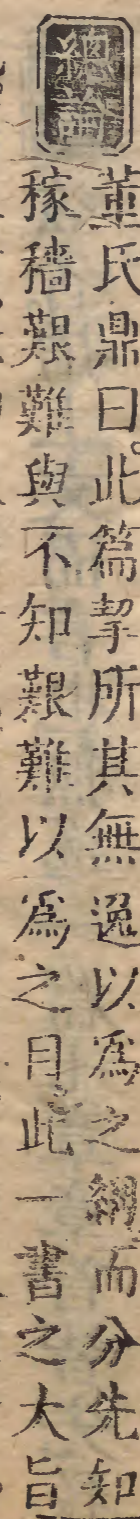 總論
董氏鼎曰此篇挈所其無逸以爲之綱而分先知
稼穡艱難與不知艱難以爲之目此一書之大旨